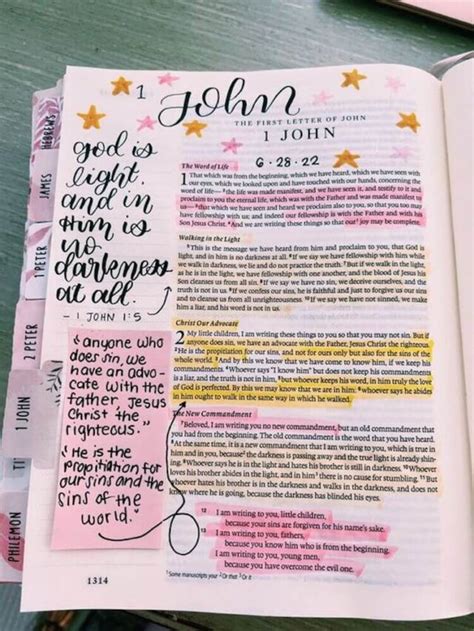 HEBREWS
JAMES
1 PETER
2 PETER
1 JOHN
TI
PHILEMON
1 John
THE FIRST LETTER OF JOHN
1 JOHN
6·28·22
god is
light,
and in
Him is
no
darkness
at all.
- 1 JOHN 1:5
"anyone who
does sin, we
have an advo-
cate with the
father, Jesus
Christ the
righteous."
"He is the
propitiation for
our sins and the
sins of the
world."
The Word of Life
1 That which was from the beginning, which we have heard, which we have seen with
our eyes, which we looked upon and have touched with our hands, concerning the
word of life— ² the life was made manifest, and we have seen it, and testify to it and
proclaim to you the eternal life, which was with the Father and was made manifest to
us— ³ that which we have seen and heard we proclaim also to you, so that you too may
have fellowship with us; and indeed our fellowship is with the Father and with his
Son Jesus Christ. ⁴And we are writing these things so that our joy may be complete.
Walking in the Light
⁵This is the message we have heard from him and proclaim to you, that God is
light, and in him is no darkness at all. ⁶If we say we have fellowship with him while
we walk in darkness, we lie and do not practice the truth. ⁷But if we walk in the light,
as he is in the light, we have fellowship with one another, and the blood of Jesus his
Son cleanses us from all sin. ⁸If we say we have no sin, we deceive ourselves, and the
truth is not in us. ⁹If we confess our sins, he is faithful and just to forgive us our sins
and to cleanse us from all unrighteousness. ¹⁰If we say we have not sinned, we make
him a liar, and his word is not in us.
Christ Our Advocate
2 My little children, I am writing these things to you so that you may not sin. But if
anyone does sin, we have an advocate with the Father, Jesus Christ the righteous.
²He is the propitiation for our sins, and not for ours only but also for the sins of the
whole world. ³And by this we know that we have come to know him, if we keep his
commandments. ⁴Whoever says "I know him" but does not keep his commandments
is a liar, and the truth is not in him, ⁵but whoever keeps his word, in him truly the love
of God is perfected. By this we may know that we are in him: ⁶whoever says he abides
in him ought to walk in the same way in which he walked.
The New Commandment
⁷Beloved, I am writing you no new commandment, but an old commandment that
you had from the beginning. The old commandment is the word that you have heard.
⁸At the same time, it is a new commandment that I am writing to you, which is true in
him and in you, because the darkness is passing away and the true light is already
shining. ⁹Whoever says he is in the light and hates his brother is still in darkness. ¹⁰Whoever
loves his brother abides in the light, and in him there is no cause for stumbling. ¹¹But
whoever hates his brother is in the darkness and walks in the darkness, and does not
know where he is going, because the darkness has blinded his eyes.
12 I am writing to you, little children,
because your sins are forgiven for his name's sake.
13 I am writing to you, fathers,
because you know him who is from the beginning.
I am writing to you, young men,
because you have overcome the evil one.
1314
¹ Some manuscripts your ² Or that ³ Or it